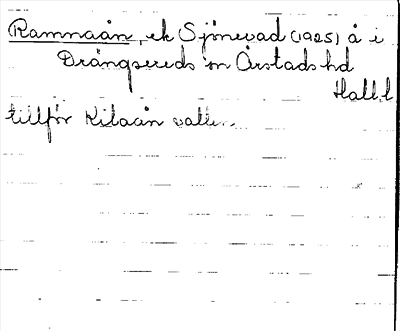 Ramnaån, ek Sjönevad (1925) å i
Drängsereds sn Årstads hd
Hall. l.
tillför Kilaån vatten